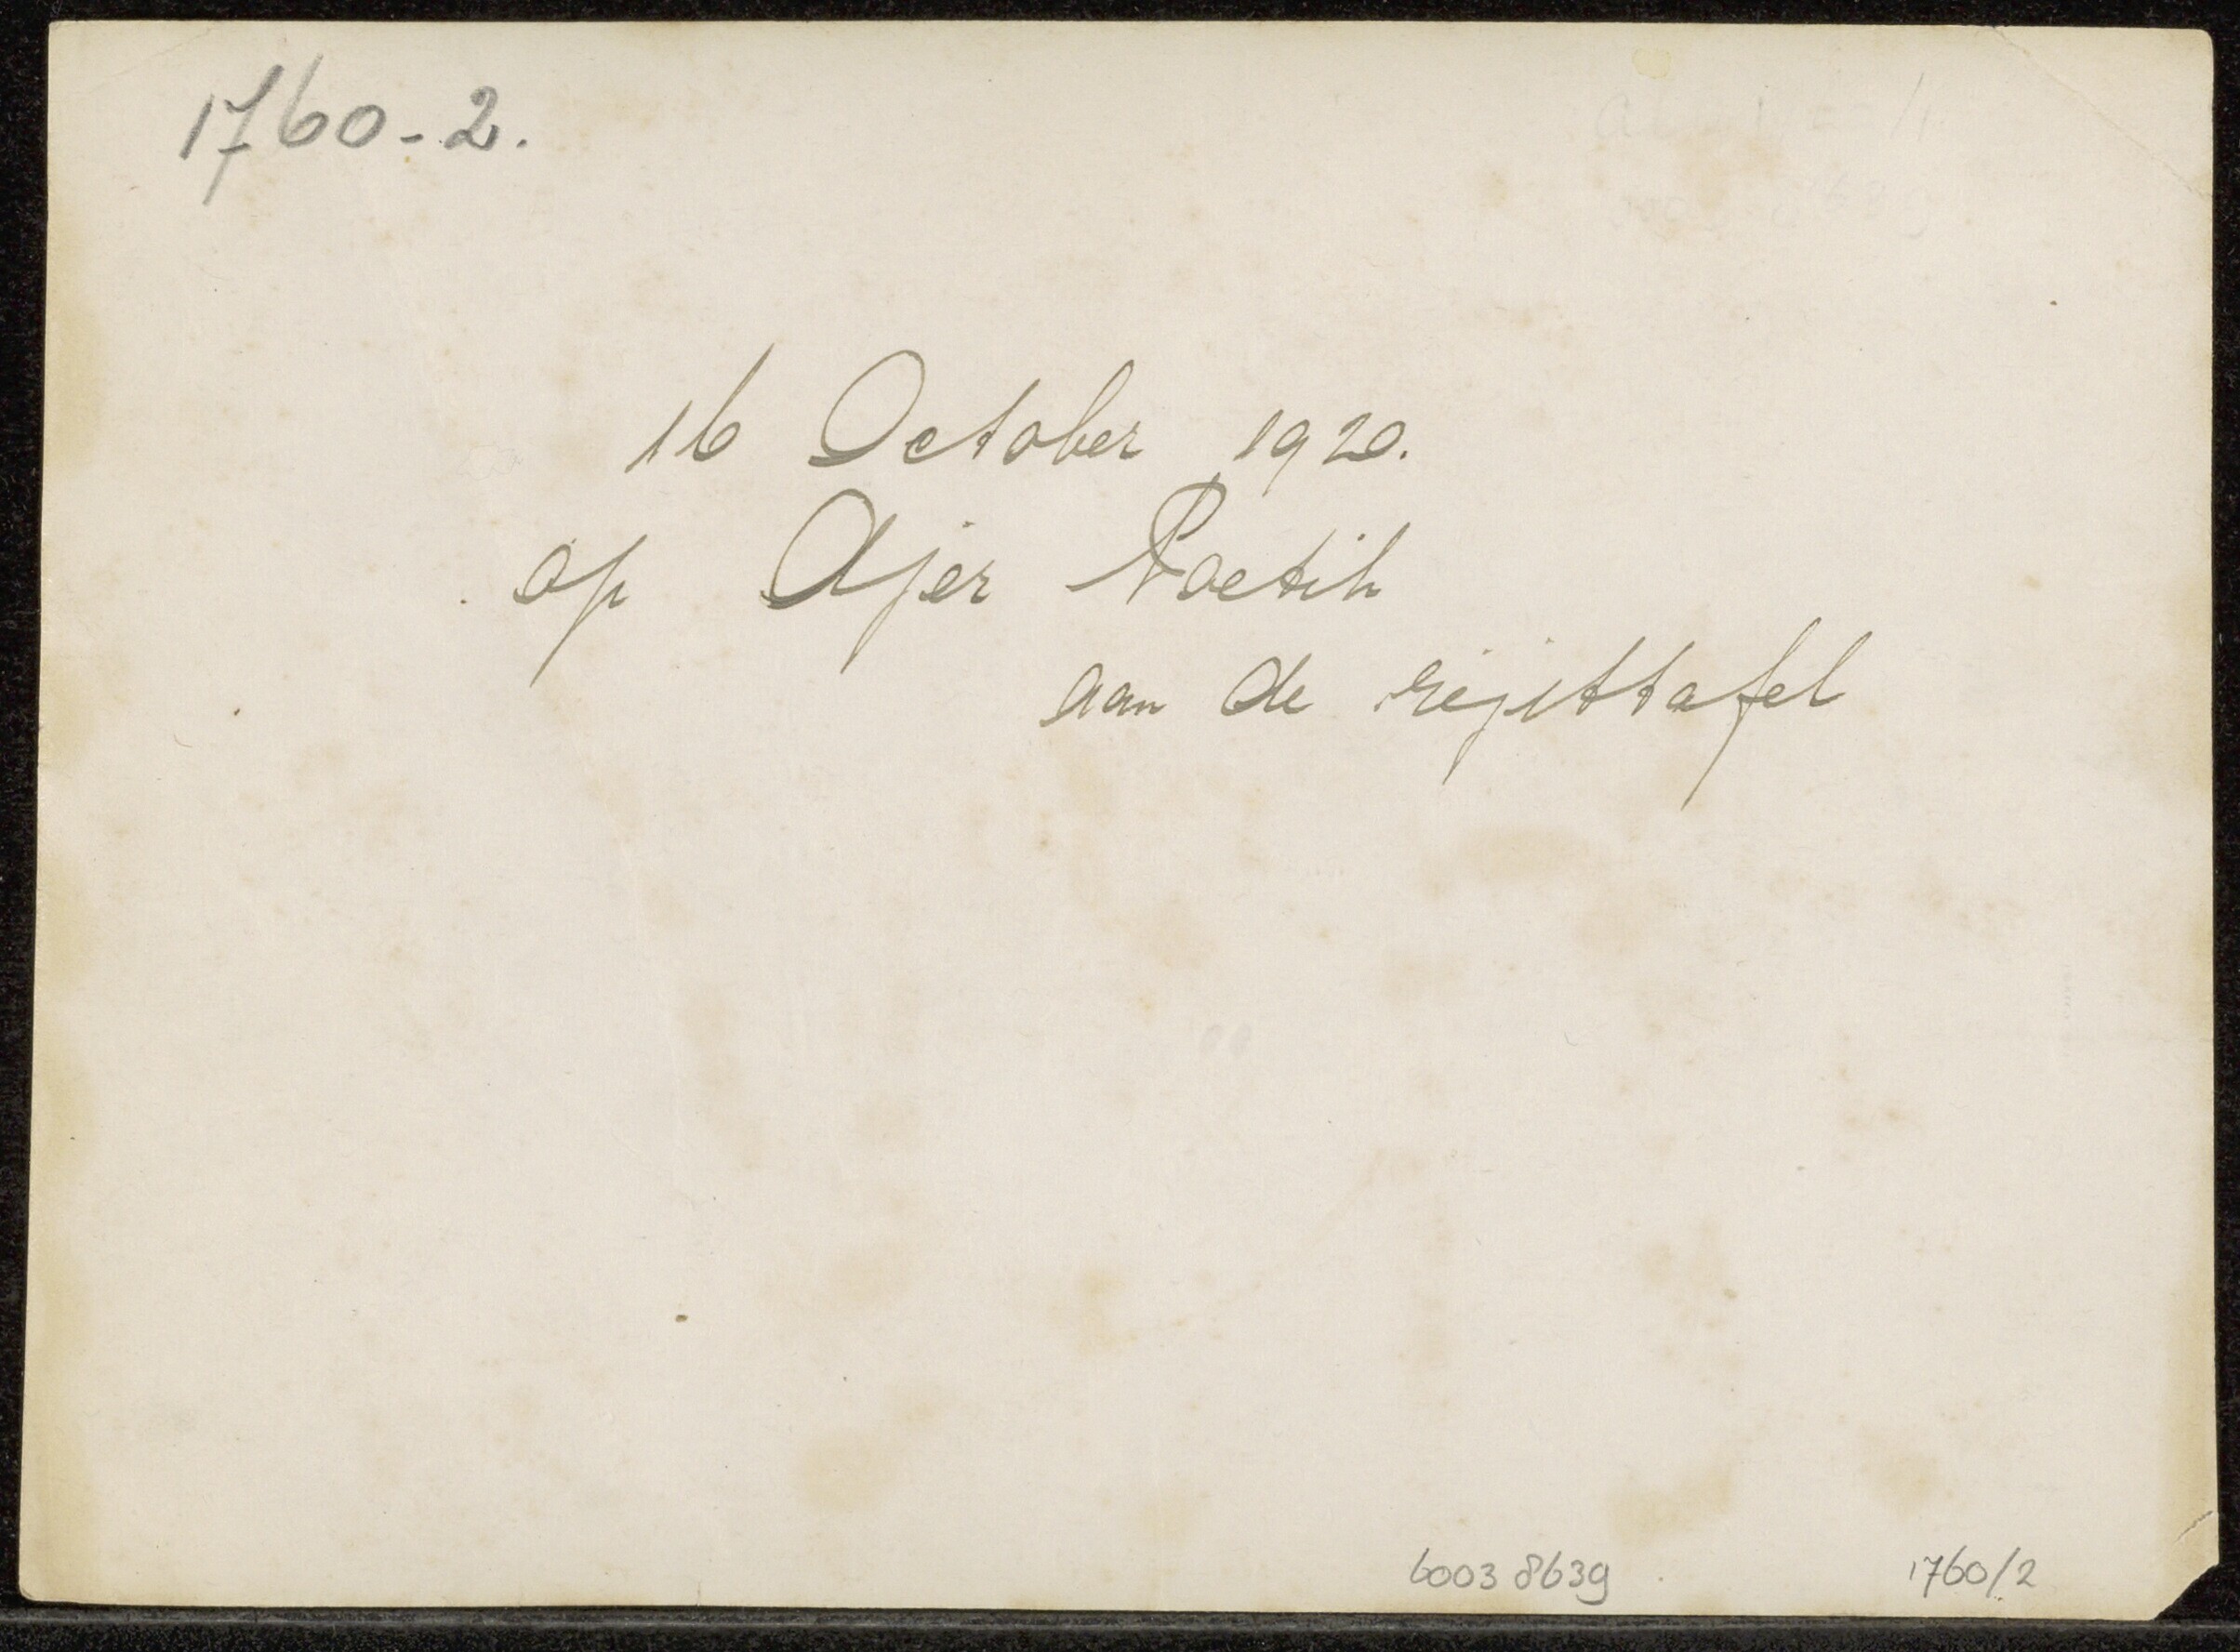 1760-2.
16 October 1920.
op Ajer Poetih
aan de rijsttafel
6003 8639
1760/2